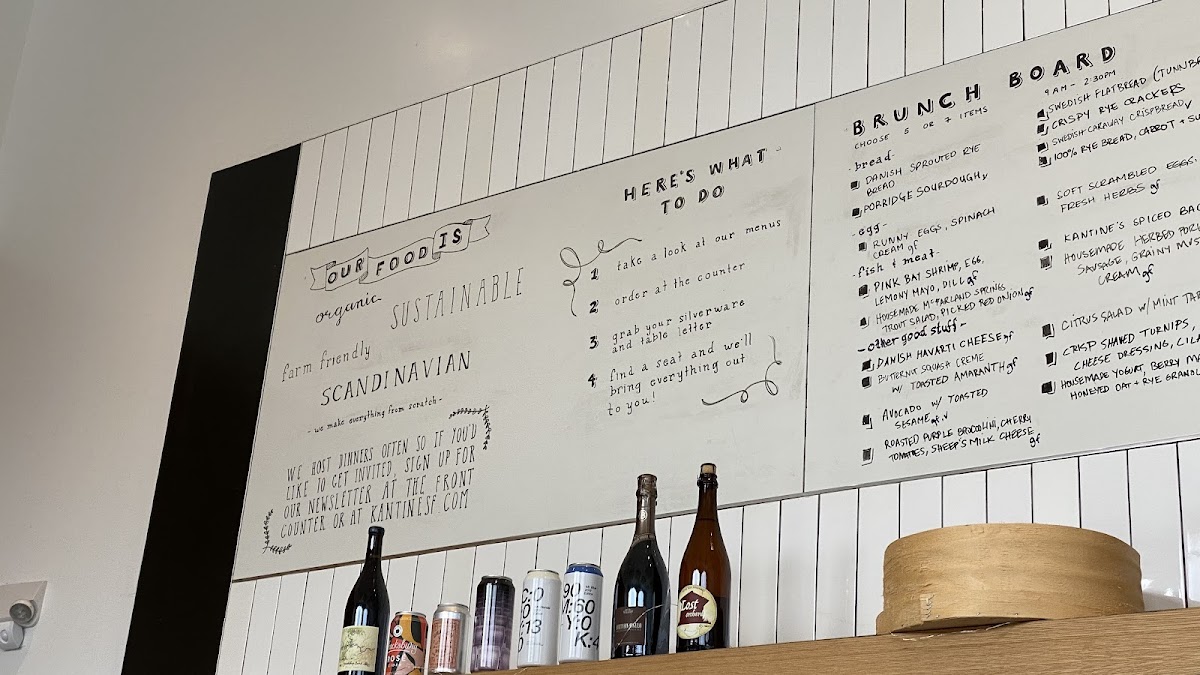 OUR FOOD IS
organic
SUSTAINABLE
farm friendly
SCANDINAVIAN
- we make everything from scratch -
WE HOST DINNERS OFTEN SO IF YOU'D
LIKE TO GET INVITED, SIGN UP FOR
OUR NEWSLETTER AT THE FRONT
COUNTER OR AT KANTINESF.COM
HERE'S WHAT
TO DO
1. take a look at our menus
2. order at the counter
3. grab your silverware
and table letter
4. find a seat and we'll
bring everything out
to you!
BRUNCH BOARD
CHOOSE 5 OR 7 ITEMS
9 AM - 2:30PM
- bread -
DANISH SPROUTED RYE
BREAD
PORRIDGE SOURDOUGH v
- egg -
RUNNY EGGS, SPINACH
CREAM gf
- fish & meat -
PINK BAY SHRIMP, EGG,
LEMONY MAYO, DILL gf
HOUSEMADE McFARLAND SPRINGS
TROUT SALAD, PICKED RED ONION gf
- other good stuff -
DANISH HAVARTI CHEESE gf
BUTTERNUT SQUASH CREME
W/ TOASTED AMARANTH gf
AVOCADO W/ TOASTED
SESAME gf, v
ROASTED PURPLE BROCOLINI, CHERRY
TOMATOES, SHEEP'S MILK CHEESE
gf
SWEDISH FLATBREAD (TUNNB
CRISPY RYE CRACKERS
SWEDISH CARAWAY CRISPBREAD v
100% RYE BREAD, CARROT + SU
SOFT SCRAMBLED EGGS,
FRESH HERBS gf
KANTINE'S SPICED BAC
HOUSEMADE HERBED POR
SAUSAGE, GRAINY MUS
CREAM gf
CITRUS SALAD W/ MINT TAR
CRISP SHAVED TURNIPS,
CHEESE DRESSING, CILA
HOUSEMADE YOGURT, BERRY MA
HONEYED OAT + RYE GRANOL
ROSÉ
C:0
0
13
0
90
M:60
Y:0
K:4